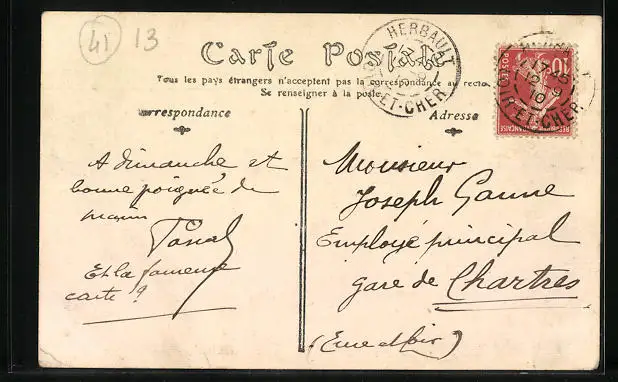 41 13
Carte Postale
Tous les pays étrangers n'acceptent pas la correspondance au recto
Se renseigner à la poste
HERBAULT
ET-CHER
POSTES
10
REPUBLIQUE FRANÇAISE
17 45
12 9
10
LOIR-ET-CHER
Correspondance
A dimanche et
bonne poignée de
main
Et la fameuse
carte ?
Adresse
Monsieur
Joseph Ganne
Employé principal
gare de Chartres
(Eure et Loir)